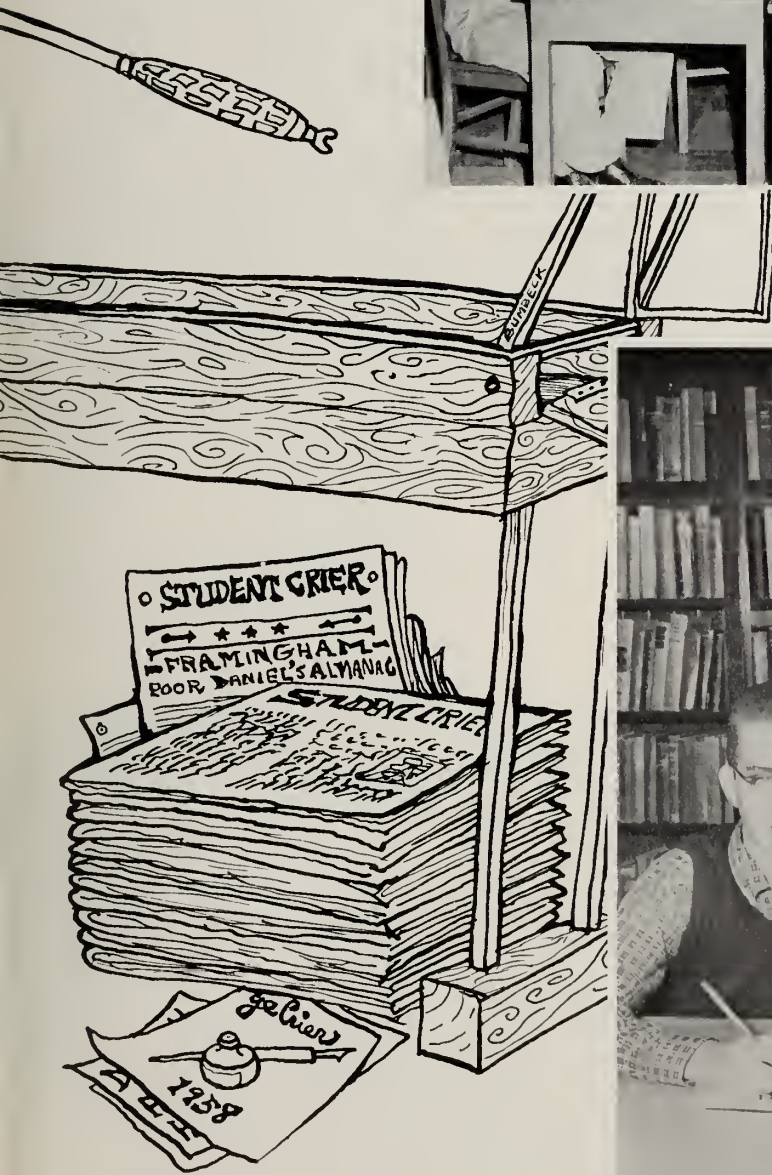 BUMBECK
STUDENT CRIER
FRAMINGHAM
POOR DANIEL'S ALMANAC
STUDENT CRIER
ye Crier
1958